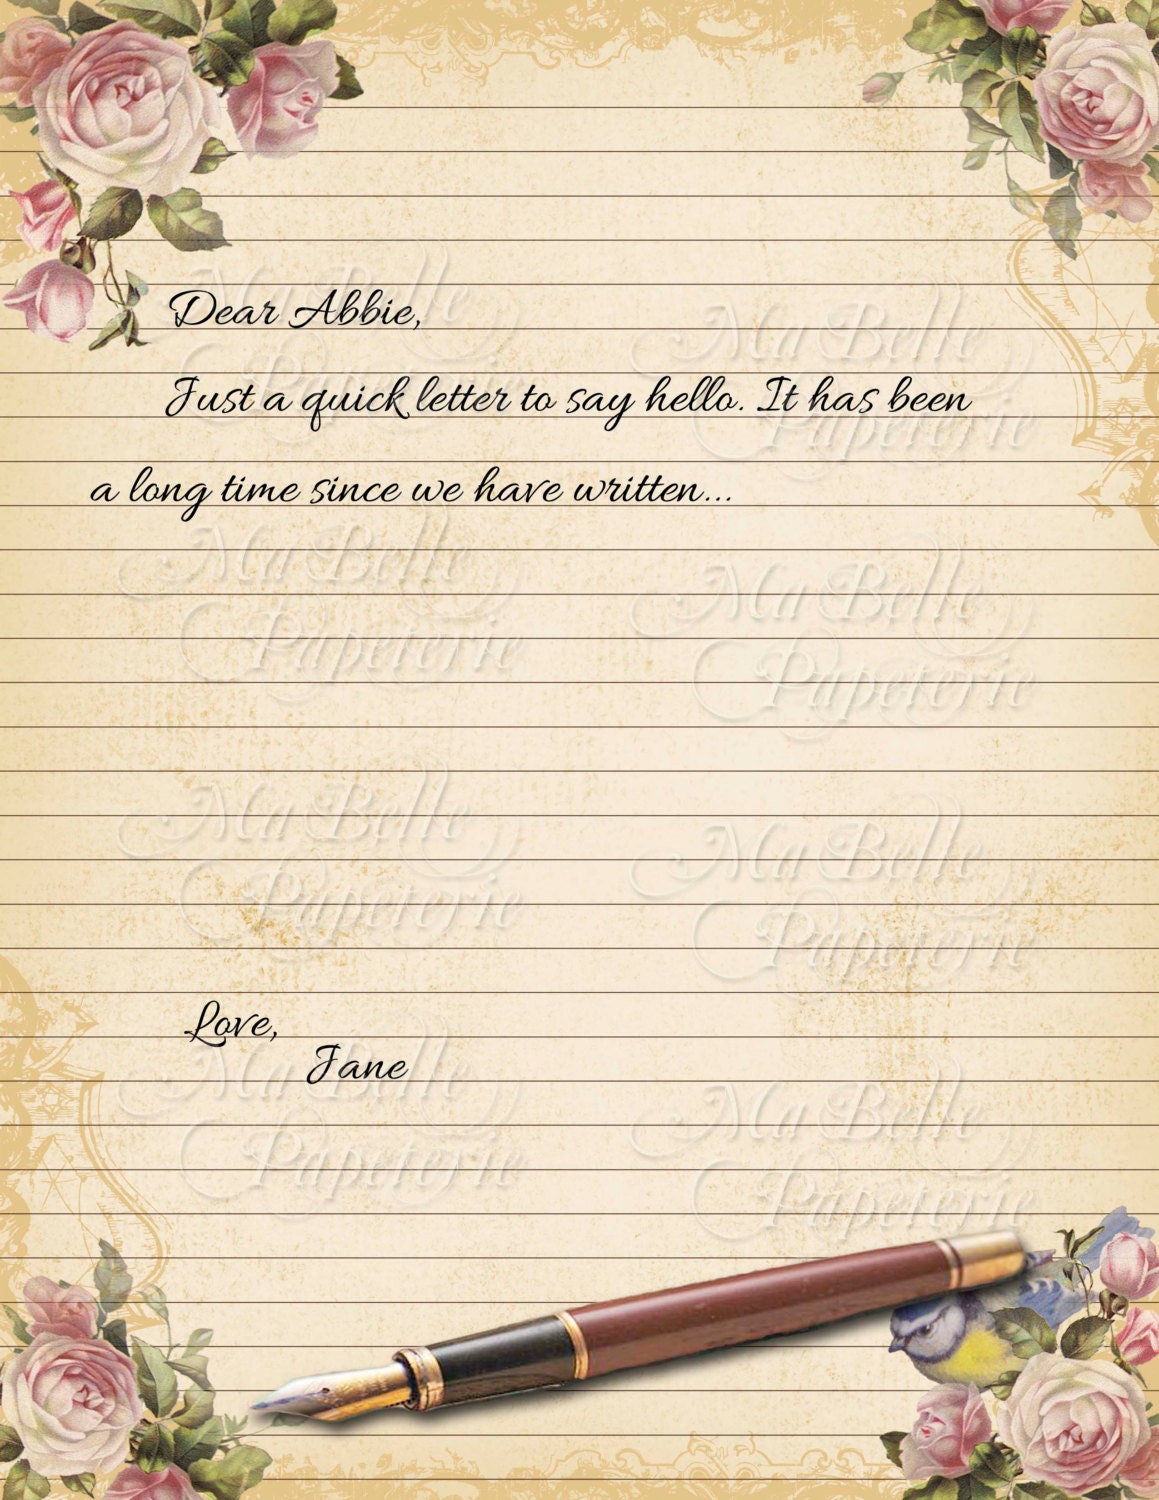 Dear Abbie,
Just a quick letter to say hello. It has been
a long time since we have written...
Love,
Jane
Ma Belle
Papeterie
Ma Belle
Papeterie
Ma Belle
Papeterie
Ma Belle
Papeterie
Ma Belle
Papeterie
Ma Belle
Papeterie
Ma Belle
Papeterie
Ma Belle
Papeterie